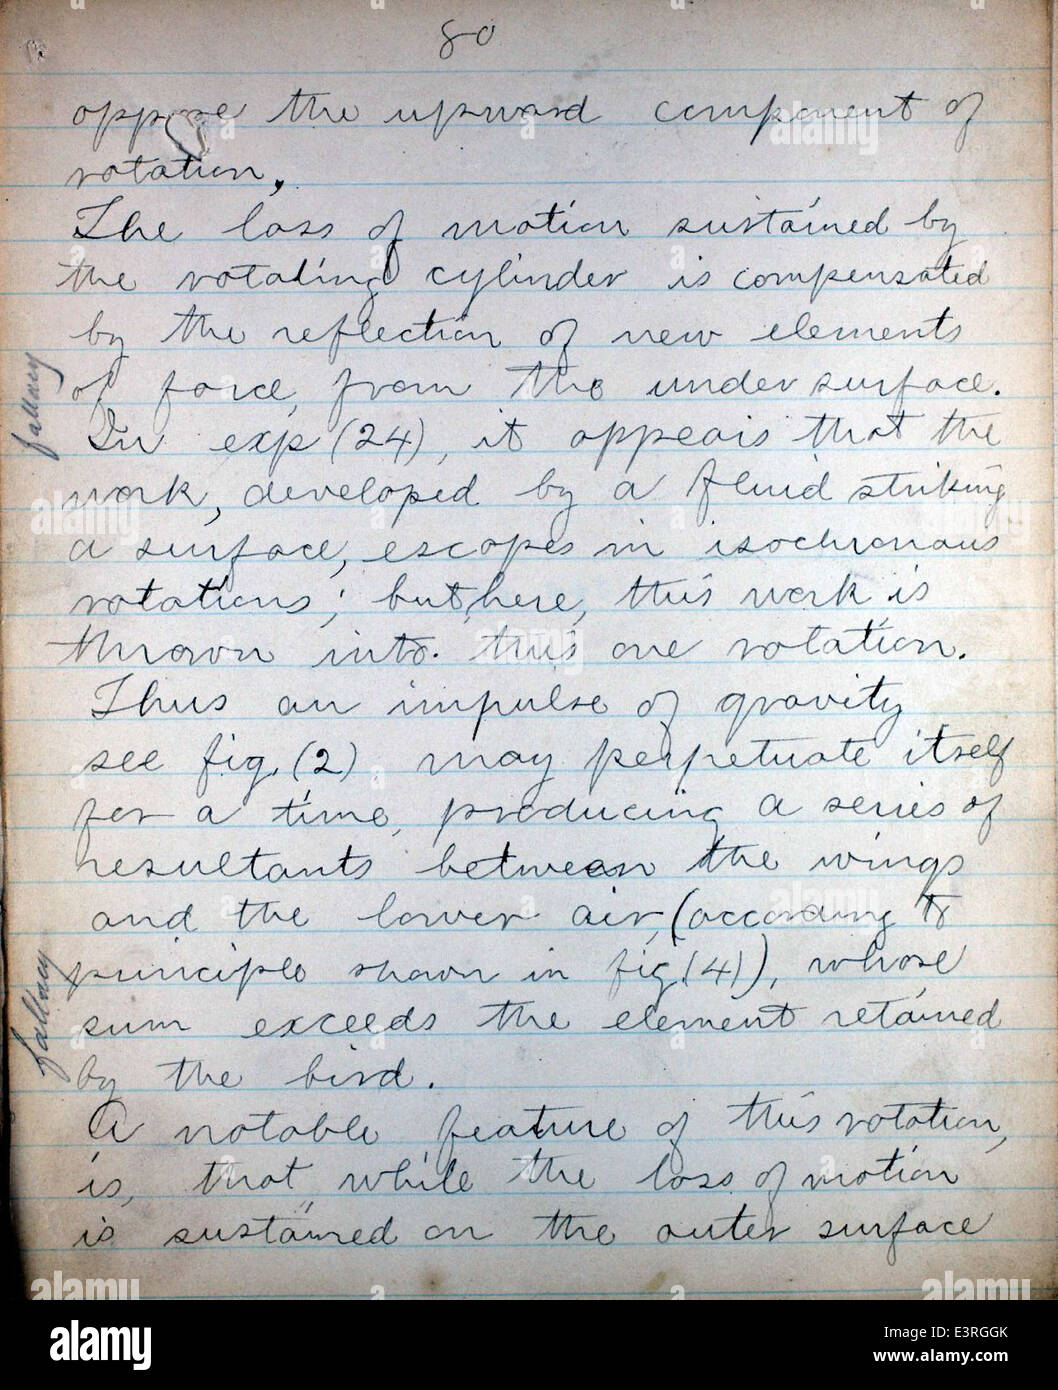 80
oppose the upward component of
rotation.
The loss of motion sustained by
the rotating cylinder is compensated
by the reflection of new elements
of force, from the under surface.
fallacy
In exp (24), it appears that the
work, developed by a fluid striking
a surface, escapes in isochronous
rotations; but, here, this work is
thrown into this one rotation.
Thus an impulse of gravity
see fig. (2) may perpetuate itself
for a time, producing a series of
resultants between the wings
and the lower air, (according to
principle shown in fig. (4)), whose
fallacy
sum exceeds the element retained
by the bird.
A notable feature of this rotation,
is, that while the loss of motion
is sustained on the outer surface
alamy
Image ID: E3RGGK
www.alamy.com